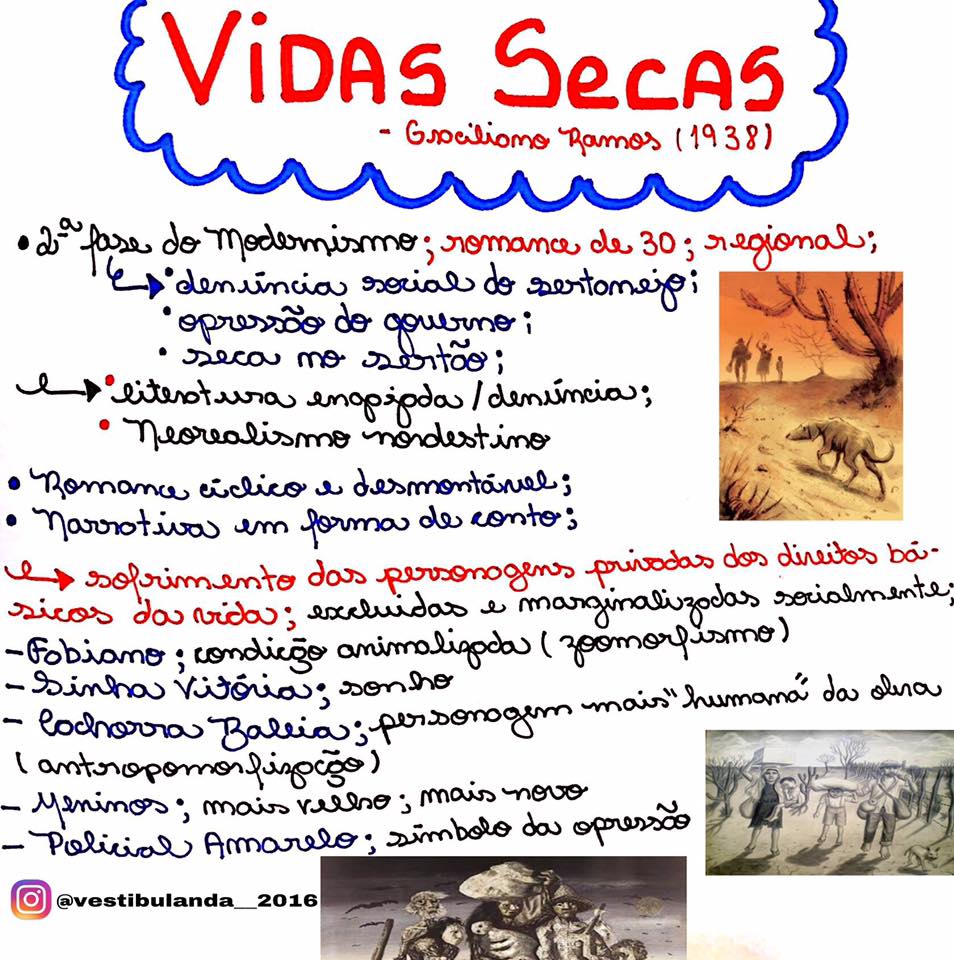 VIDAS SECAS
- Graciliano Ramos (1938)
• 2ª fase do Modernismo; romance de 30; regional;
• denúncia social do sertanejo;
• opressão do governo;
• seca no sertão;
• literatura engajada/denúncia;
• Neorealismo nordestino
• Romance cíclico e desmontável;
• Narrativa em forma de conto;
sofrimento das personagens privadas dos direitos bá-
sicos da vida; excluidas e marginalizadas socialmente;
- Fabiano; condição animalizada (zoomorfismo)
- Sinha Vitória; sonho
- Cachorra Baleia; personagem mais "humana" da obra
(antropomorfização)
- Meninos; mais velho; mais novo
- Policial Amarelo; símbolo da opressão
@vestibulanda__2016